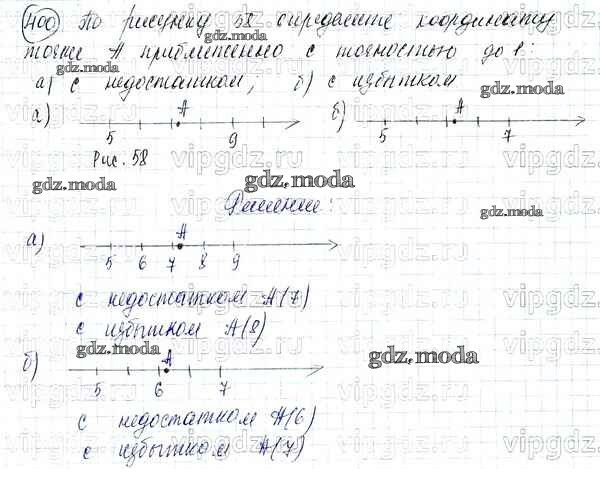 400 По рисунку 58 определите координату
точки А приближенно с точностью до 1:
а) с недостатком; б) с избытком
gdz.moda
gdz.moda
а) A б) A
5 9 5 7
Рис. 58
vipgdz.ru
gdz.moda
gdz.moda
gdz.moda
Решение:
а) A
5 6 7 8 9
с недостатком A(7)
с избытком A(8)
gdz.moda
gdz.moda
б) A
5 6 7
с недостатком A(6)
с избытком A(7)